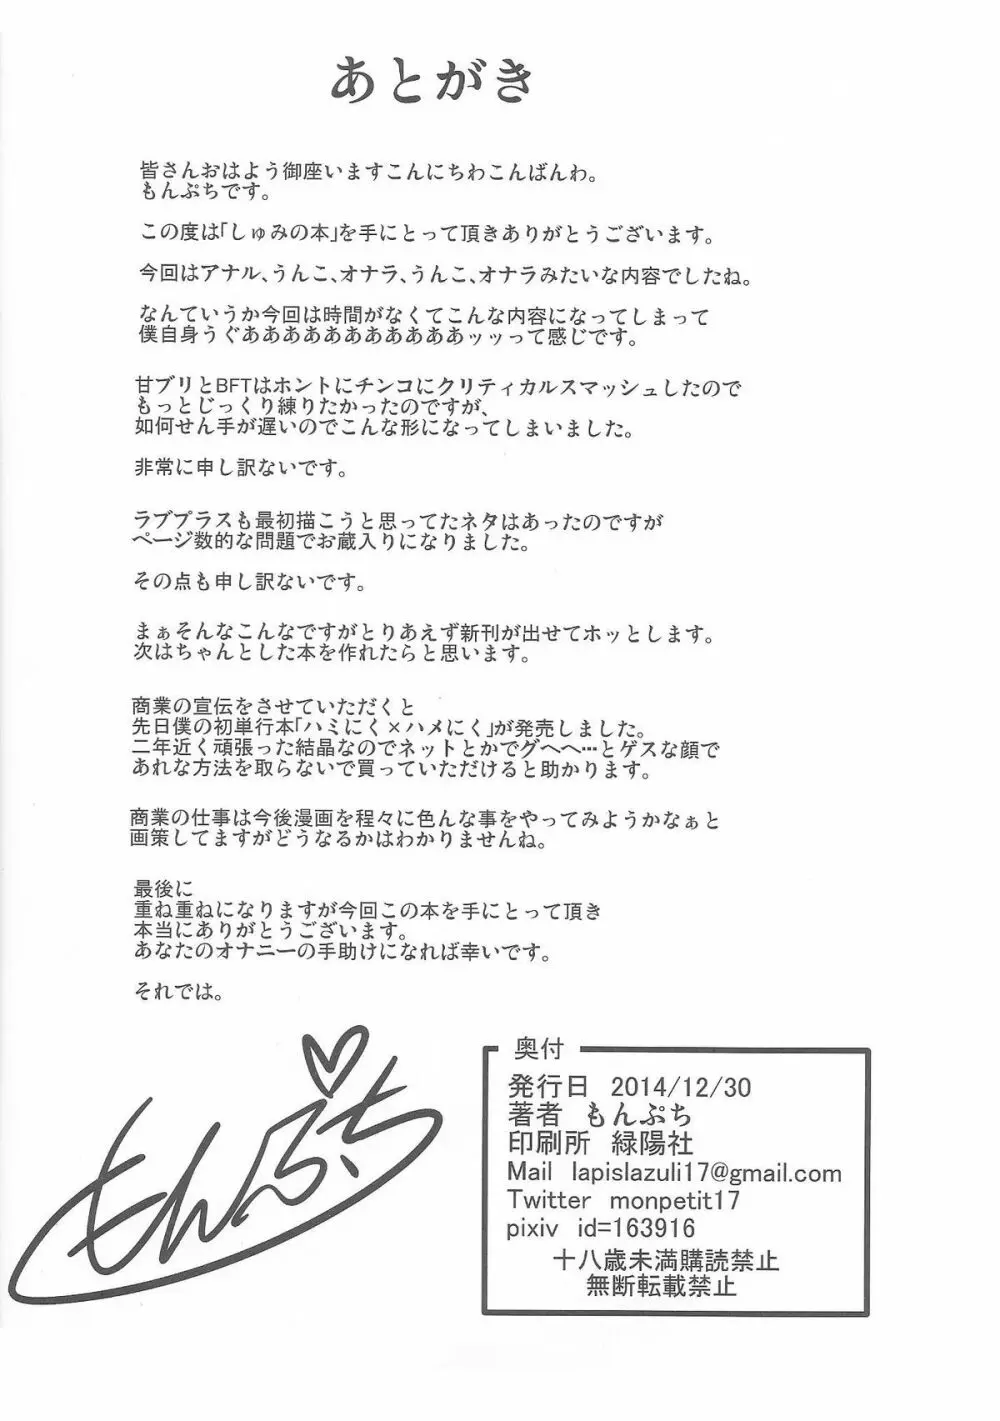 あとがき
皆さんおはよう御座いますこんにちわこんばんわ。
もんぷちです。
この度は「しゅみの本」を手にとって頂きありがとうございます。
今回はアナル、うんこ、オナラ、うんこ、オナラみたいな内容でしたね。
なんていうか今回は時間がなくてこんな内容になってしまって
僕自身うぐあああああああああああッッって感じです。
甘ブリとBFTはホントにチンコにクリティカルスマッシュしたので
もっとじっくり練りたかったのですが、
如何せん手が遅いのでこんな形になってしまいました。
非常に申し訳ないです。
ラブプラスも最初描こうと思ってたネタはあったのですが
ページ数的な問題でお蔵入りになりました。
その点も申し訳ないです。
まぁそんなこんなですがとりあえず新刊が出せてホッとします。
次はちゃんとした本を作れたらと思います。
商業の宣伝をさせていただくと
先日僕の初単行本「ハミにく×ハメにく」が発売しました。
二年近く頑張った結晶なのでネットとかでグへへ…とゲスな顔で
あれな方法を取らないで買っていただけると助かります。
商業の仕事は今後漫画を程々に色んな事をやってみようかなぁと
画策してますがどうなるかはわかりませんね。
最後に
重ね重ねになりますが今回この本を手にとって頂き
本当にありがとうございます。
あなたのオナニーの手助けになれば幸いです。
それでは。
もんぷち
奥付
発行日 2014/12/30
著者 もんぷち
印刷所 緑陽社
Mail lapislazuli17@gmail.com
Twitter monpetit17
pixiv id=163916
十八歳未満購読禁止
無断転載禁止